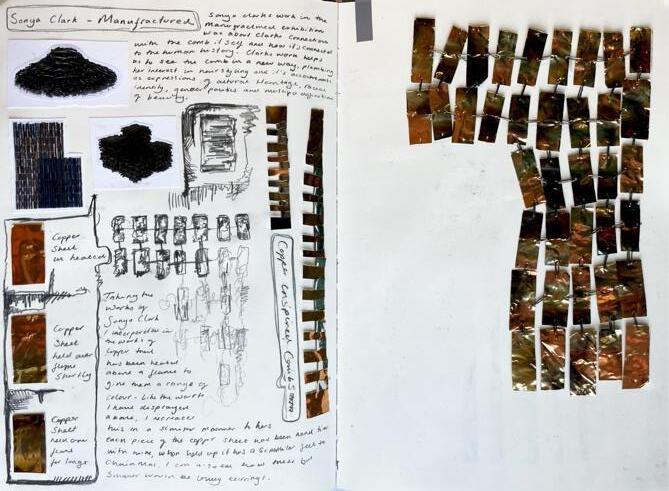 Sonya Clark - Manufractured
Sonya Clarks work in the
Manufractured exhibition
was about Clarks connection
with the comb itself and how it's connected
to the human history. Clarks work helps
us to see the comb in a new way,
her interest in hair styling and it's
as expressions of cultural heritage, racial
identity, gender politics and
of beauty.
Copper
Sheet
un heated
Copper
Sheet
held over
flame
Shortly
Copper
Sheet
held over
flame
for longer
Taking the
works of
Sonya Clark
I incorporated in
the works of
Copper that
has been heated
above a flame to
give them a range of
colour - like the works
I have displayed
above, I
this in a similar manner to hers
each piece of the copper sheet has been
with wire, when held up it has a similar feel to
Chainmail, I can also see how these
would be lovely earrings.
Copper inspired Combs